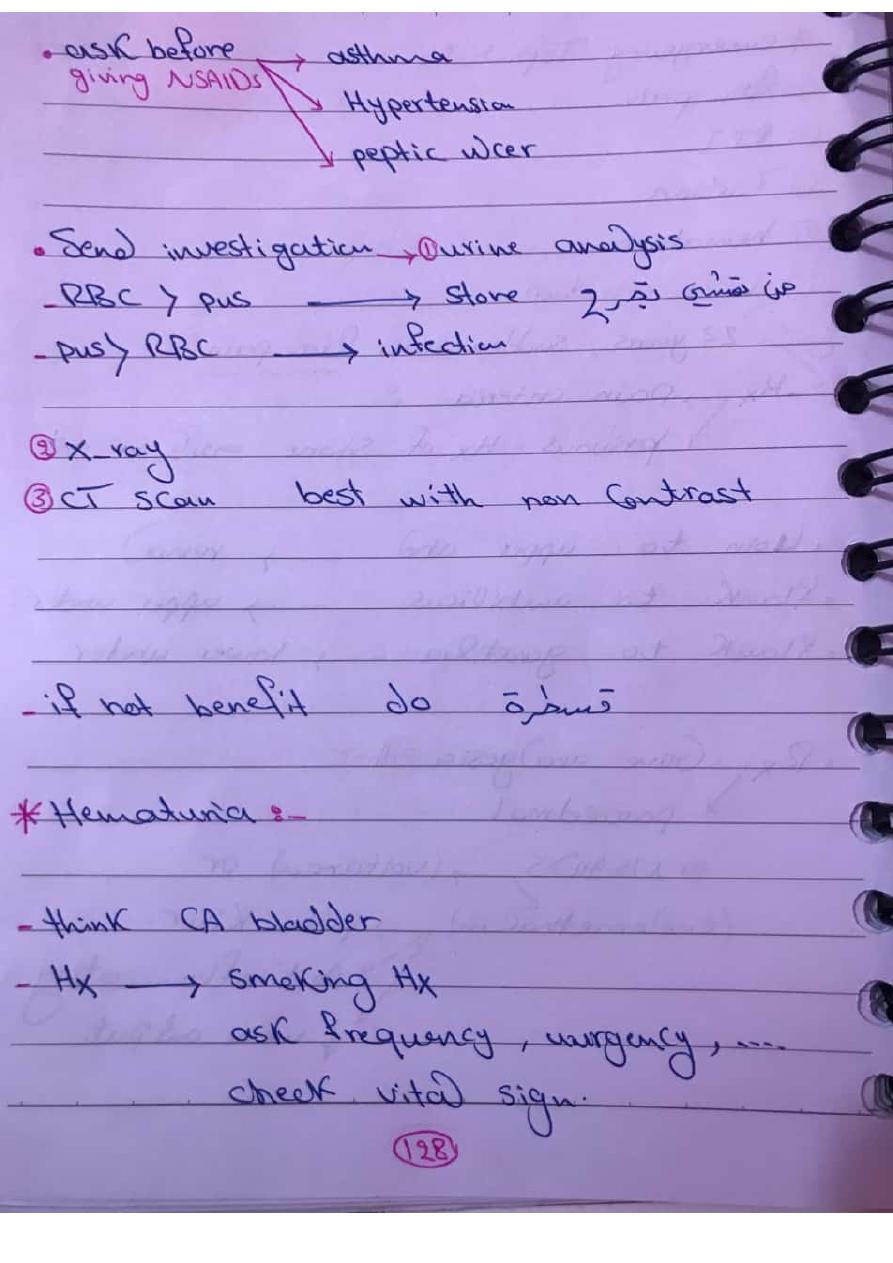 • ask before → asthma
giving NSAIDs
Hypertension
peptic ulcer
• Send investigation → ① urine analysis
- RBC > pus → Stone من تمشي بتجرح
- pus > RBC → infection
② X-ray
③ CT scan best with non Contrast
- if not benefit do قسطرة
* Hematuria :-
- think CA bladder
- Hx → smoking Hx
ask frequency, uurgency, ....
check vital sign.
128